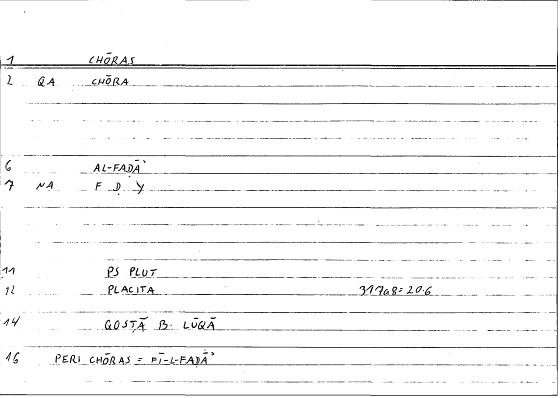 1 CHŌRAS
2 QA CHŌRA
6 AL-FAḌĀʾ
7 NA F Ḍ Y
11 PS PLUT
12 PLACITA 317a8=20.6
14 QOSṬĀ B. LŪQĀ
16 PERI CHŌRAS = FĪ-L-FAḌĀʾ